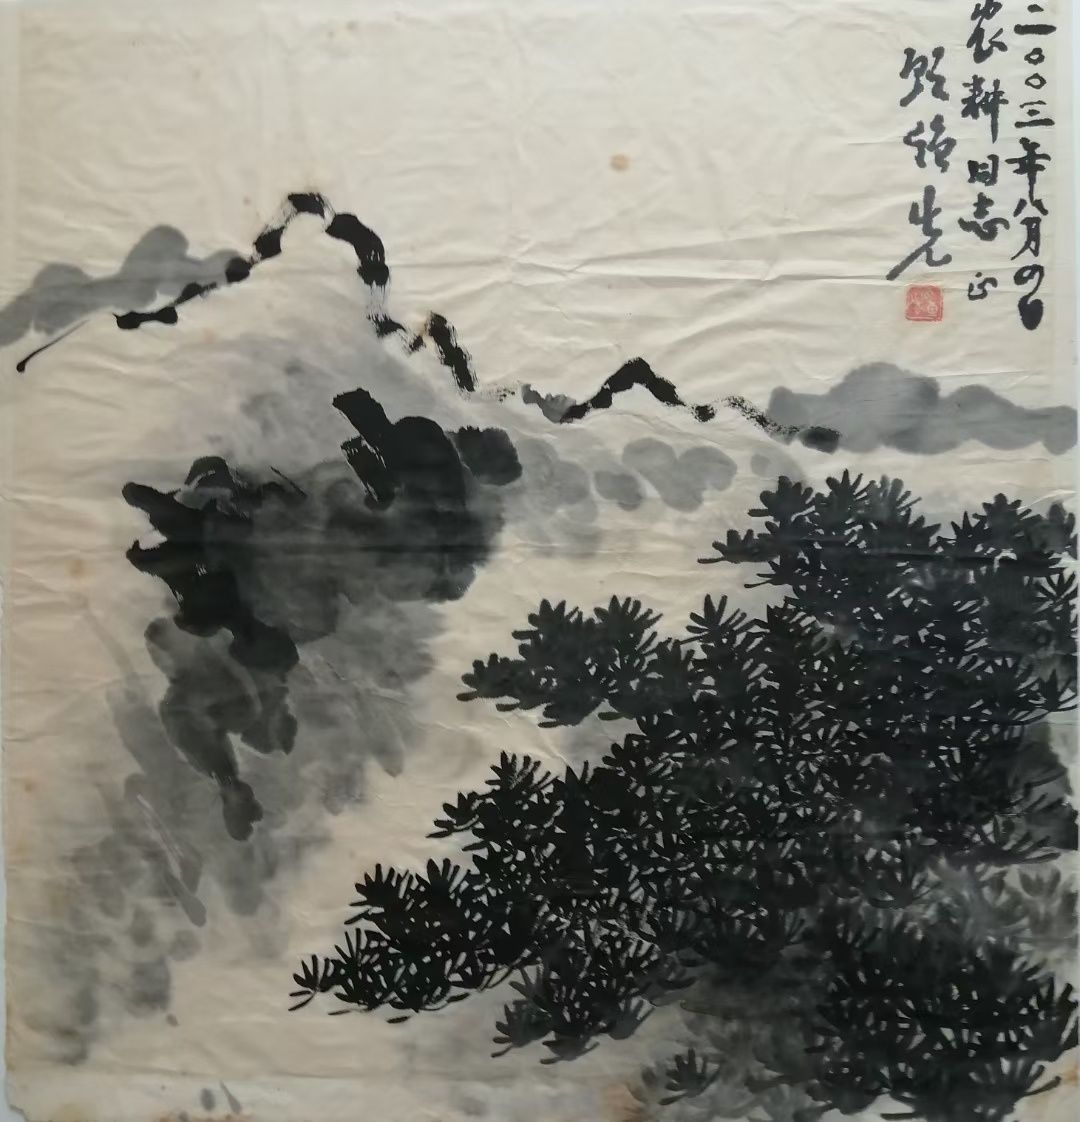 二〇〇三年八月四日
农耕同志正
先